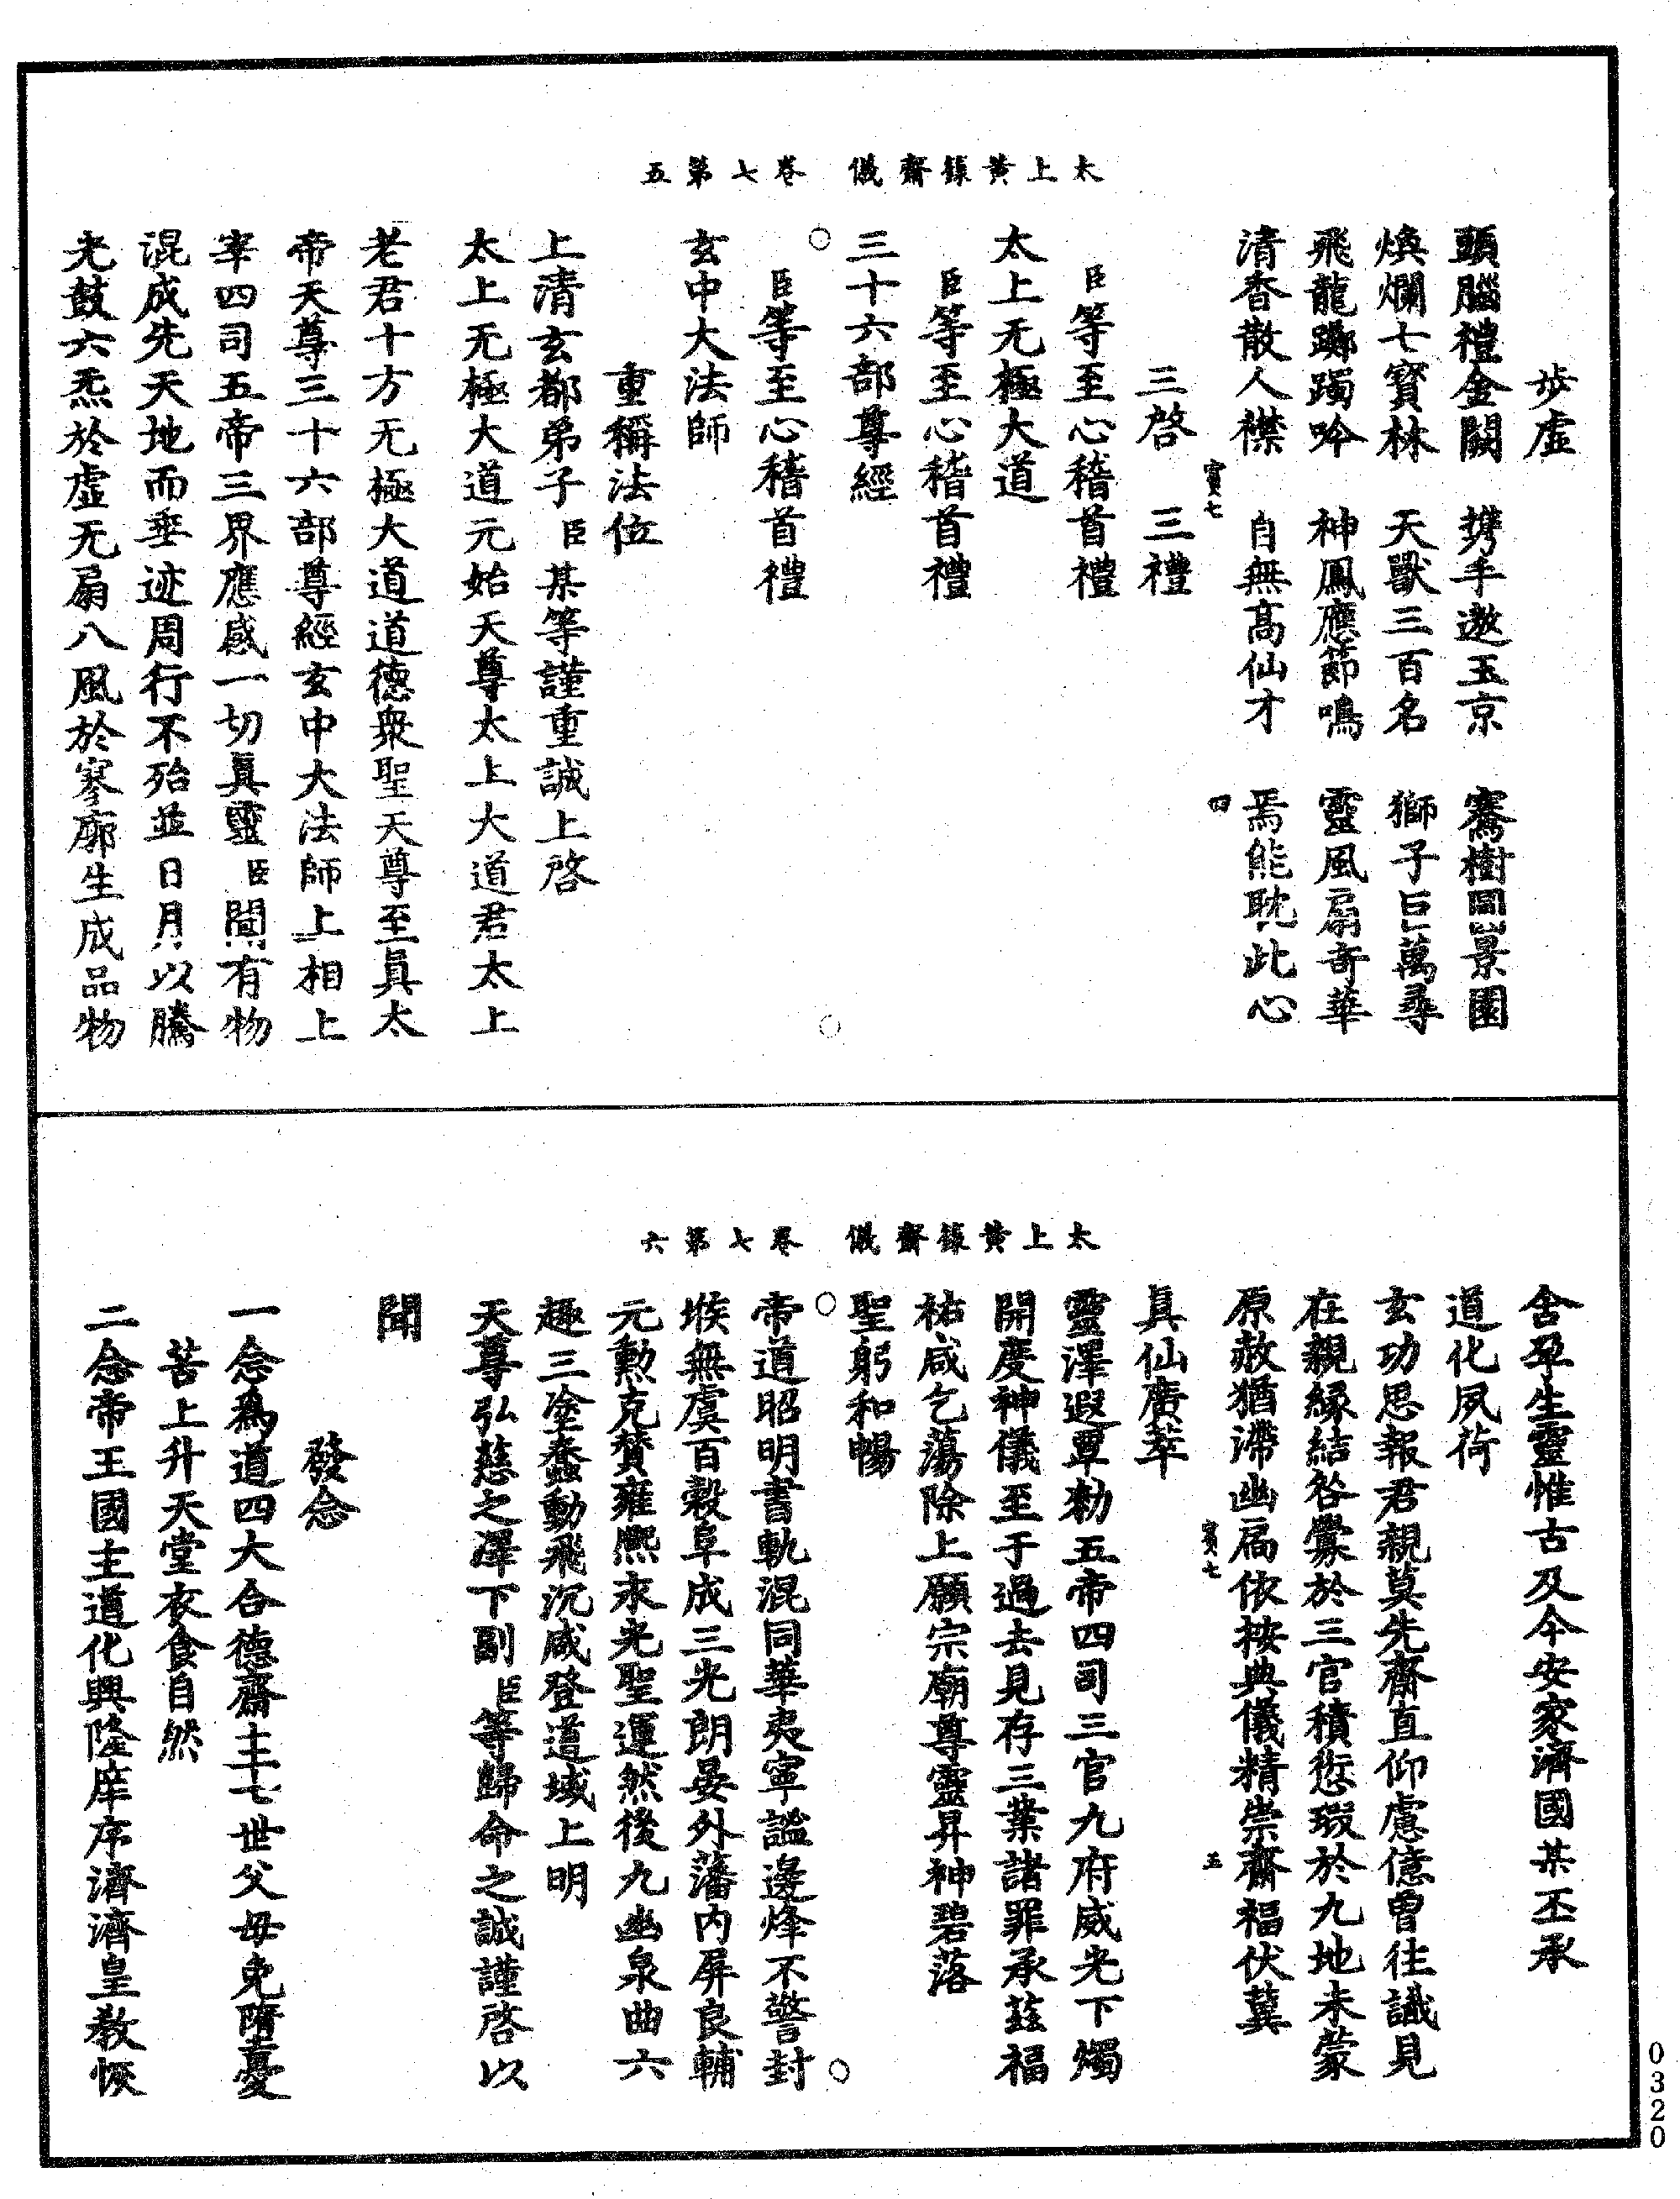 太上黃籙齋儀　卷七第五
步虛
頭腦禮金闕　携手遨玉京　騫樹圓景園
煥爛七寶林　天獸三百名　獅子巨萬尋
飛龍躑躅吟　神鳳應節鳴　靈風扇奇華
清香散人襟　自無高仙才　焉能耽此心
賓七　四
三啓　三禮
臣等至心稽首禮
太上无極大道
臣等至心稽首禮
三十六部尊經
臣等至心稽首禮
玄中大法師
重稱法位
上清玄都弟子臣某等謹重誠上啓
太上无極大道元始天尊太上大道君太上
老君十方无極大道道德衆聖天尊至眞太
帝天尊三十六部尊經玄中大法師上相上
宰四司五帝三界應感一切眞靈臣聞有物
混成先天地而垂迹周行不殆並日月以騰
光鼓六炁於虛无扇八風於寥廓生成品物
太上黃籙齋儀　卷七第六
含孕生靈惟古及今安家濟國某丕承
道化夙荷
玄功思報君親莫先齋直仰慮億曾往識見
在親緣結咎釁於三官積愆瑕於九地未蒙
原赦猶滯幽扃依按典儀精崇齋福伏冀
賓七　五
眞仙廣萃
靈澤遐覃勑五帝四司三官九府威光下燭
開慶神儀至于過去見存三業諸罪承茲福
祐咸乞蕩除上願宗廟尊靈昇神碧落
聖躬和暢
帝道昭明書軌混同華夷寧謐邊烽不警封
堠無虞百穀阜成三光朗晏外藩內屏良輔
元勳克贊雍熙永光聖運然後九幽泉曲六
趣三塗蠢動飛沉咸登道域上明
天尊弘慈之澤下副臣等歸命之誠謹啓以
聞
發念
一念爲道四大合德齋主七世父母免離憂
苦上升天堂衣食自然
二念帝王國主道化興隆庠序濟濟皇教恢
0320